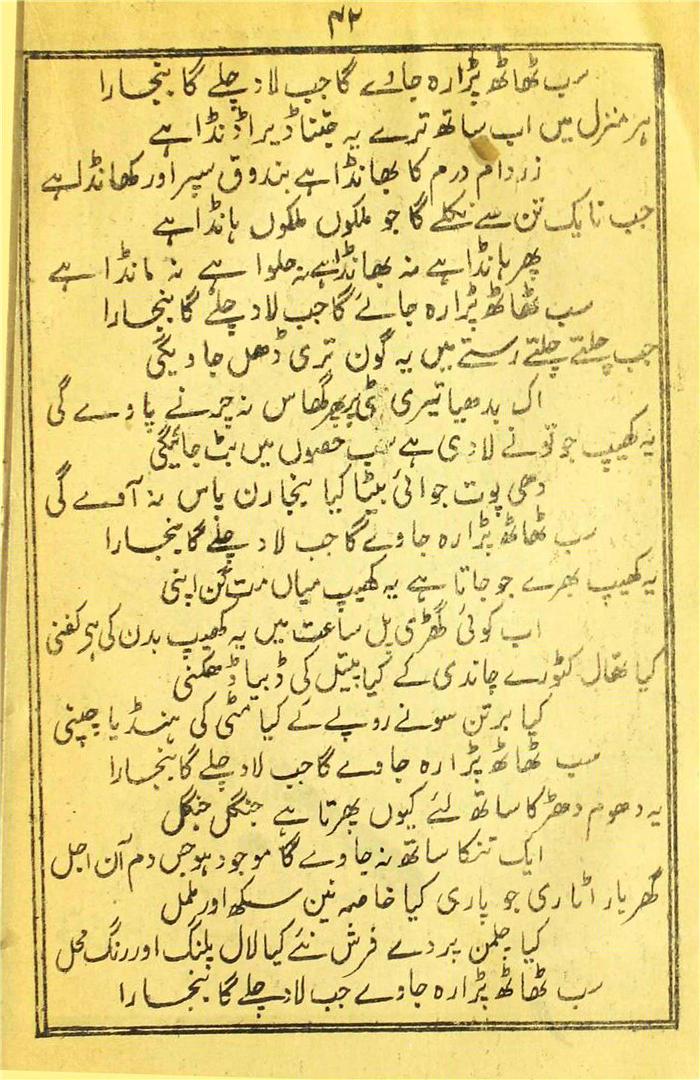 ۴۲
سب ٹھاٹھ پڑا رہ جائے گا جب لاد چلے گا بنجارا
ہر منزل میں اب ساتھ ترے یہ جتنا ڈیرا ڈنڈا ہے
زر دام درم کا بھانڈا ہے بندوق سپر اور کھانڈا ہے
جب نایک تن سے نکلے گا جو ملکوں ملکوں ہانڈا ہے
پھر ہانڈا ہے نہ بھانڈا ہے نہ حلوا ہے نہ مانڈا ہے
سب ٹھاٹھ پڑا رہ جائے گا جب لاد چلے گا بنجارا
جب چلتے چلتے رستے میں یہ گون تری ڈھل جاویگی
اک بدھیا تیری مٹی پر پھر گھاس نہ چرنے پاوے گی
یہ کھیپ جو تونے لادی ہے سب حصوں میں بٹ جائیگی
دھی پوت جوائی بیٹا کیا بنجارن پاس نہ آوے گی
سب ٹھاٹھ پڑا رہ جاوے گا جب لاد چلے گا بنجارا
یہ کھیپ بھرے جو جاتا ہے یہ کھیپ میاں مت گن اپنی
اب کوئی گھڑی پل ساعت میں یہ کھیپ بدن کی ہی کفنی
کیا تھال کٹورے چاندی کے کیا پیتل کی ڈبیا ڈھکنی
کیا برتن سونے روپے کے کیا مٹی کی ہنڈیا چپنی
سب ٹھاٹھ پڑا رہ جاوے گا جب لاد چلے گا بنجارا
یہ دھوم دھڑکا ساتھ لئے کیوں پھرتا ہے جنگل جنگل
ایک تنکا ساتھ نہ جاوے گا موجود ہو جس دم آن اجل
گھر بار اٹاری جو پاری کیا خاصہ نین سکھ اور ململ
کیا چلمن پردے فرش نئے کیا لال پلنگ اور رنگ محل
سب ٹھاٹھ پڑا رہ جاوے جب لاد چلے گا بنجارا